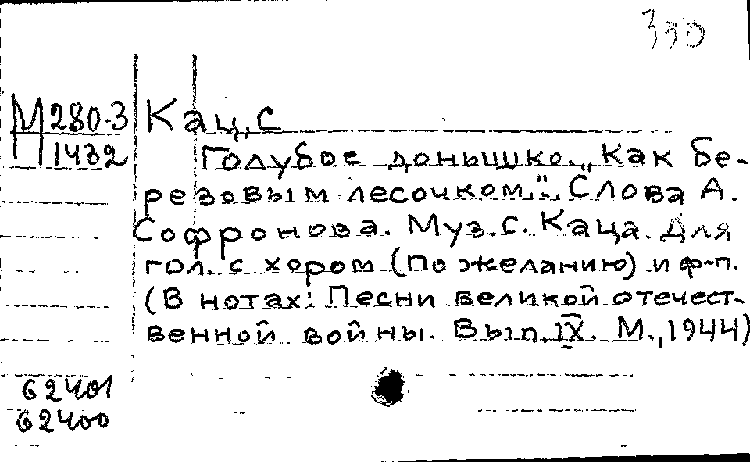 330
М280-3 Кац, С
1432
Голубое донышко. „Как бе-
резовым лесочком.“ Слова А.
Софронова. Муз. С. Каца. Для
гол. с хором (по желанию) и ф-п.
(В нотах: Песни великой отечест-
венной войны. Вып. IX. М., 1944)
62401
62400